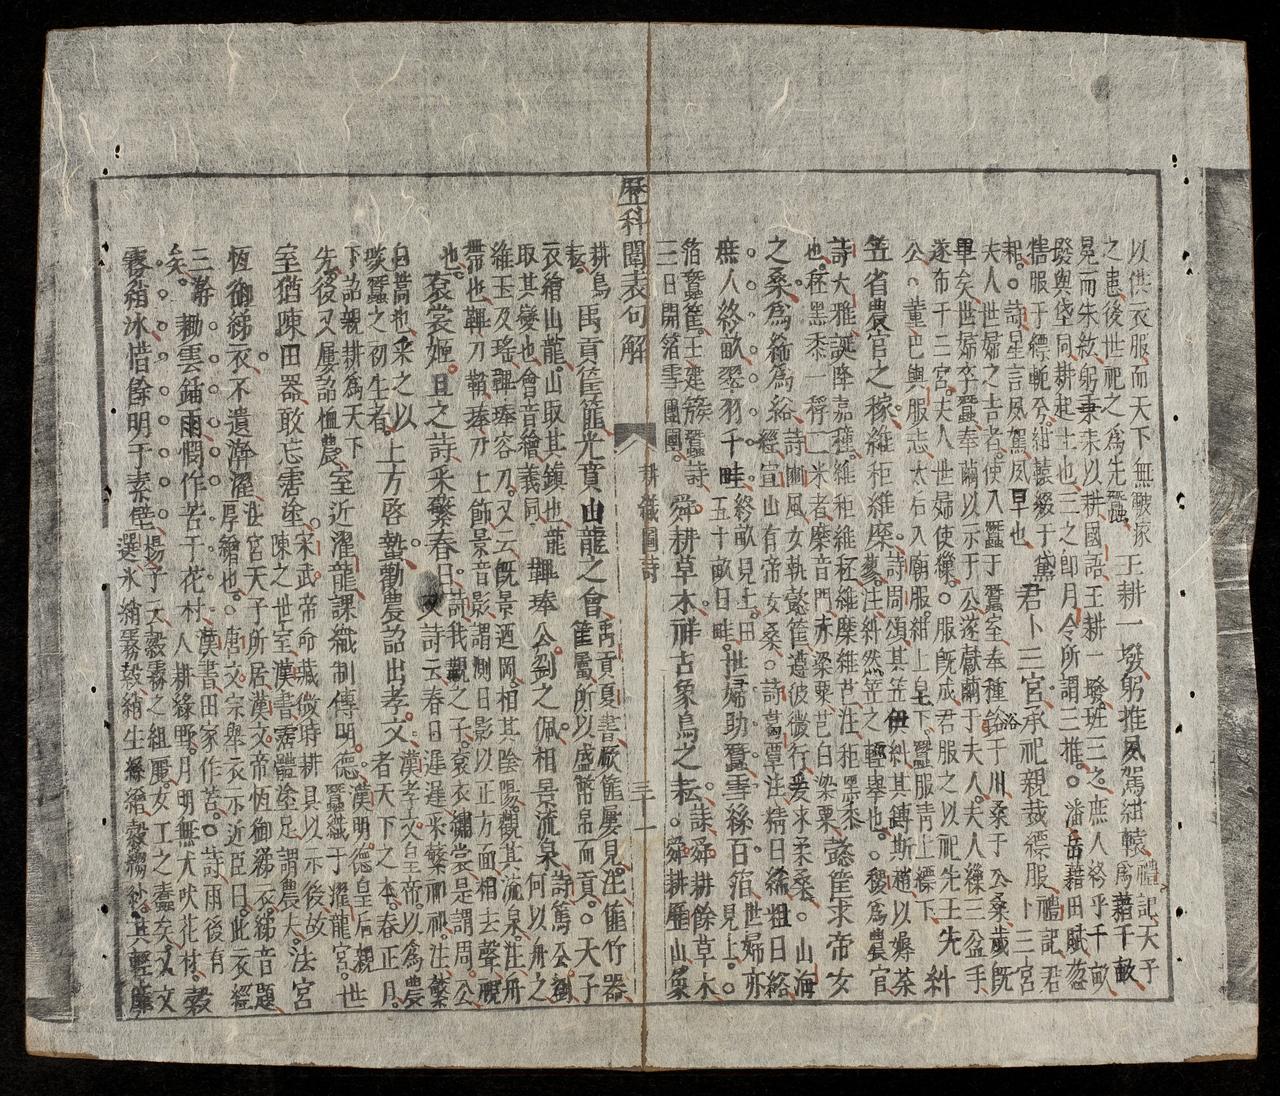 以供衣服而天下無皸瘃
之患後世祀之為先蠶
王耕一墢躬推夙駕紺轅
禮記天子
為藉千畝
冕而朱紘躬秉耒以耕國語王耕一墢班三之庶人終乎千畝
墢與垡同耕起土也三之卽月令所謂三推。潘岳藉田賦葱
犗服于縹軛兮紺轅綴于黛
耜。詩星言夙駕夙早也
君卜三宮承祀親裁縹服
禮記君
卜三宮
夫人世婦之吉者使入蠶于蠶室奉種浴于川桑于公桑歲旣
單矣世婦卒蠶奉繭以示于公遂獻繭于夫人。夫人繅三盆手
遂布于三宮。夫人世婦使繅。服旣成君服之以祀先王先
公。董巴輿服志太后入廟服紺上皂下蠶服青上縹下
糾
笠省農官之稼維秬維穈
詩周頌其笠伊糾其鎛斯趙以薅荼
蓼。注糾然笠之輕舉也。稷為農官
詩大雅誕降嘉種。維秬維秠維穈維芑注秬黑黍
也。秠黑黍一稃二米者穈音門赤粱粟芑白粱粟
懿筐求帝女
之桑為絺為綌
詩豳風女執懿筐遵彼微行爰求柔桑。山海
經宣山有帝女桑。詩葛覃注精曰絺粗曰綌
庶人終畝翠羽千畦
終畝見上。田
五十畝曰畦。
世婦助蠶雪絲百箔
世婦亦
見上。
箔蠶筐。王建簇蠶詩
三日開箔雪團團。
舜耕草木祥占象鳥之耘
謙舜耕餘草木
舜耕歷山象
歷科閣表句解
耕織圖詩
三十一
耕鳥
耘。
禹貢筐篚光賁山龍之會
禹貢夏書厥篚屢見。注篚竹器
筐屬所以盛幣帛而貢。天子
衣繪山龍。山取其鎮也龍
取其變也會音繪義同
鞸琫公劉之佩相景流泉
詩篤公劉
何以舟之
維玉及瑤鞸琫容刀。又云旣景迺岡。相其陰陽。觀其流泉。注舟
帶也鞸刀鞘琫刀上飾景音影謂測日影以正方面相去聲覞
也。
袞裳姬旦之詩采蘩春日
詩我覯之子。袞衣繡裳是謂周公
又詩云春日遲遲采蘩祁祁。注蘩
白蒿也采之以
啖蠶之初生者。
上方啓蟄勸農詔出孝文
漢孝文皇帝以為農
者天下之本。春正月
下詔親耕為天下
先後又屢詔恤農
室近濯龍課織制傳明德
漢明德皇后親
蠶織于濯龍宮。世
室猶陳田器敢忘霑塗
宋武帝命藏微時耕具以示後故
陳之世室漢書霑體塗足謂農夫。
法宮
恆御綈衣不遺澣濯
法宮天子所居漢文帝恆御綈衣。綈音題
厚繒也。唐文宗舉衣示近臣曰。此衣經
三澣
矣。
耡雲鍤雨憫作苦于花村
漢書田家作苦。詩雨後有
人耕綠野。月明無犬吠花村。
縠
霧綃冰惜餘明于素壁
揚子云縠霧之組麗。女工之蠹矣。文
選冰綃霧縠綃生絲繒縠縐紗。其輕靡